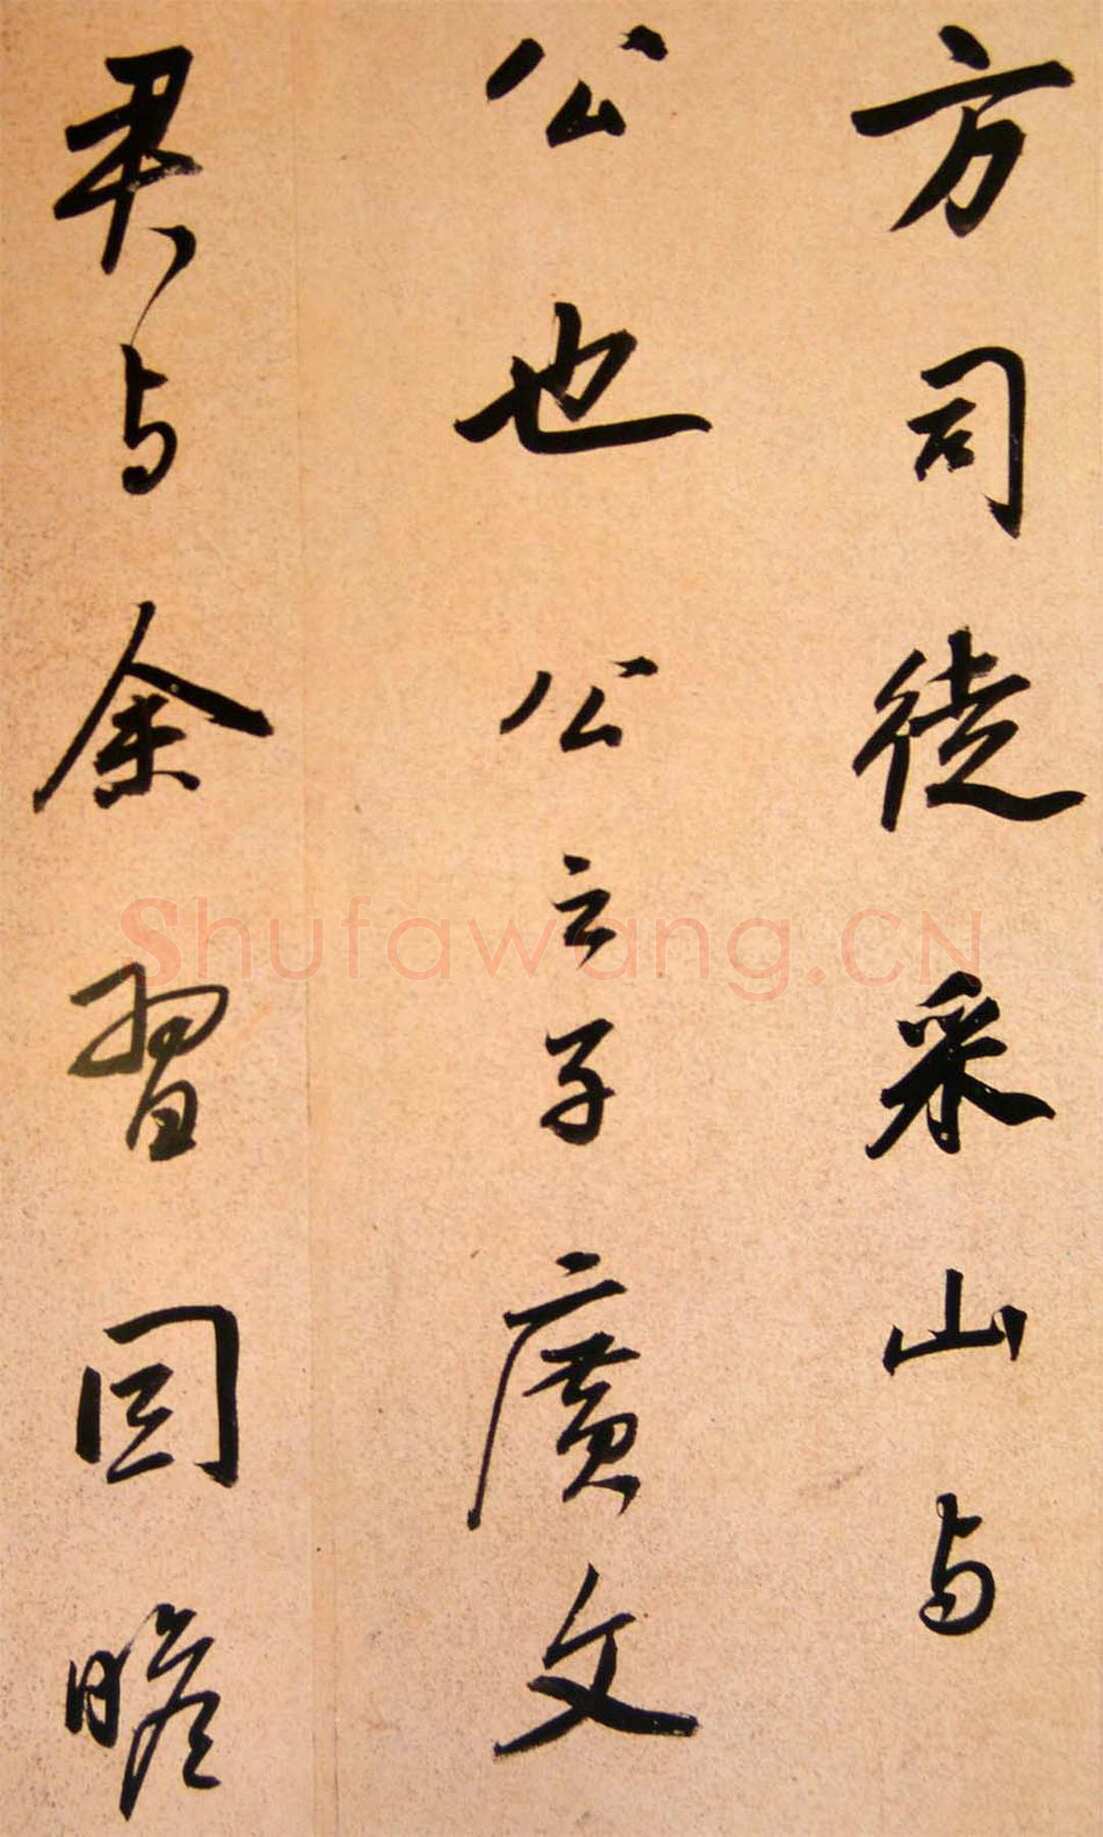 方司徒采山与
公也公之子廣文
君与余習因瞻
Shufawang.CN